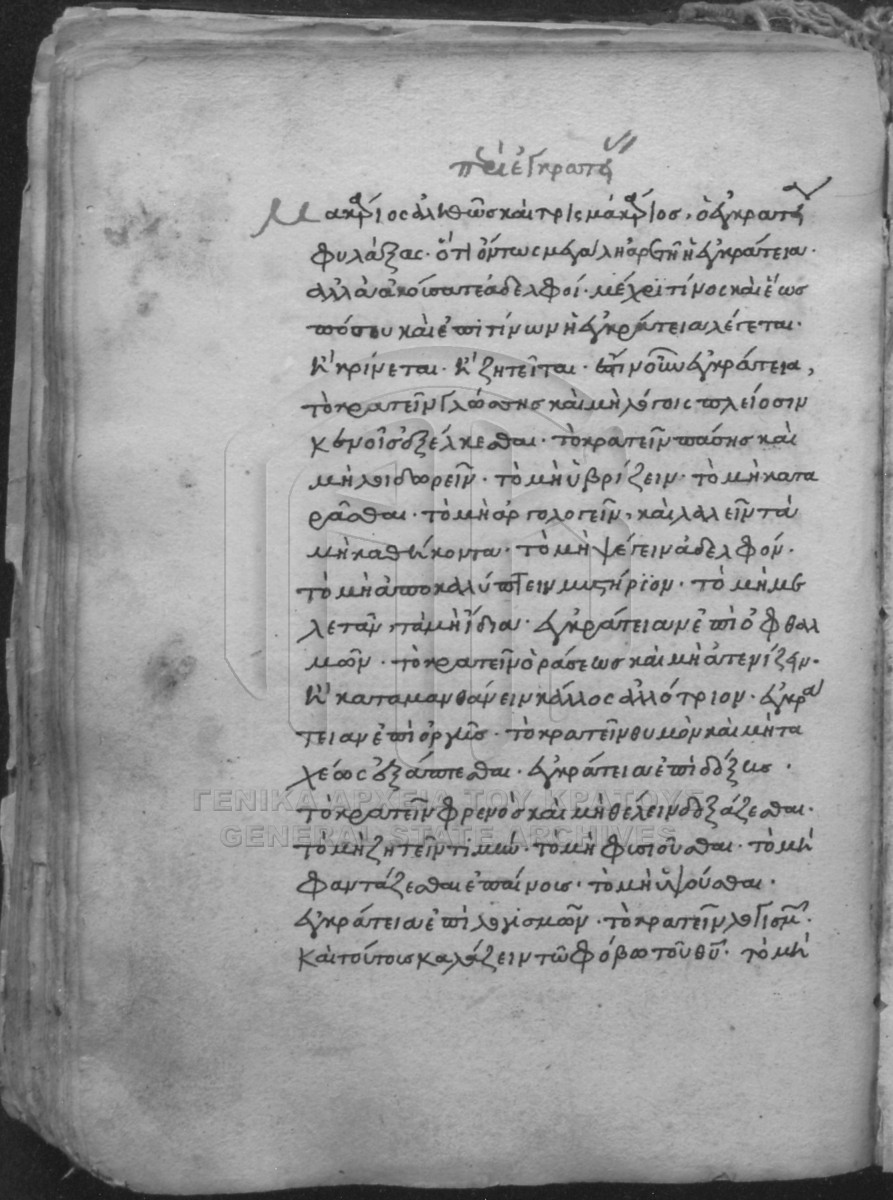 περὶ ἐγκρατείας
Μακάριος ἀληθῶς καὶ τρὶς μακάριος, ὁ ἐγκράτειαν
φυλάξας· ὅτι ὄντως μεγάλη ἀρετὴ ἡ ἐγκράτεια·
ἀλλὰ ἀκούσατε ἀδελφοί· μέχρι τίνος καὶ ἕως
πόσου καὶ ἐπὶ τίνων ἡ ἐγκράτεια λέγεται·
κ κρίνεται· κ ζητεῖται· ἔστιν οὖν ἐγκράτεια,
τὸ κρατεῖν γλώσσης καὶ μὴ λόγοις πλείοσιν
κενοῖς ἐξέλκεσθαι· τὸ κρατεῖν πάσης καὶ
μὴ λοιδορεῖν· τὸ μὴ ὑβρίζειν· τὸ μὴ κατα
ρᾶσθαι· τὸ μὴ ἀργολογεῖν, καὶ λαλεῖν τὰ
μὴ καθήκοντα· τὸ μὴ ψέγειν ἀδελφόν·
τὸ μὴ ἀποκαλύπτειν μυστήριον· τὸ μὴ με
λετᾶν τὰ μὴ ἴδια· ἐγκράτειαν ἐπὶ ὀφθαλ
μῶν· τὸ κρατεῖν ὁράσεως καὶ μὴ ἀτενίζειν·
κ καταμανθάνειν κάλλος ἀλλότριον· ἐγκρά
τειαν ἐπὶ ὀργῆς· τὸ κρατεῖν θυμὸν καὶ μὴ τα
χέως ἐξάπτεσθαι· ἐγκράτεια ἐπὶ δόξης·
τὸ κρατεῖν φρενὸς καὶ μὴ θέλειν δοξάζεσθαι·
τὸ μὴ ζητεῖν τιμήν· τὸ μὴ φυσιοῦσθαι· τὸ μὴ
φαντάζεσθαι ἐπαίνοις· τὸ μὴ ὑψοῦσθαι·
ἐγκράτεια ἐπὶ λογισμῶν· τὸ κρατεῖν λογισμ·
καὶ τούτοις κολάζειν τῶ φόβω τοῦ θυ· τὸ μὴ
ΓΕΝΙΚΑ ΑΡΧΕΙΑ ΤΟΥ ΚΡΑΤΟΥΣ
GENERAL STATE ARCHIVES